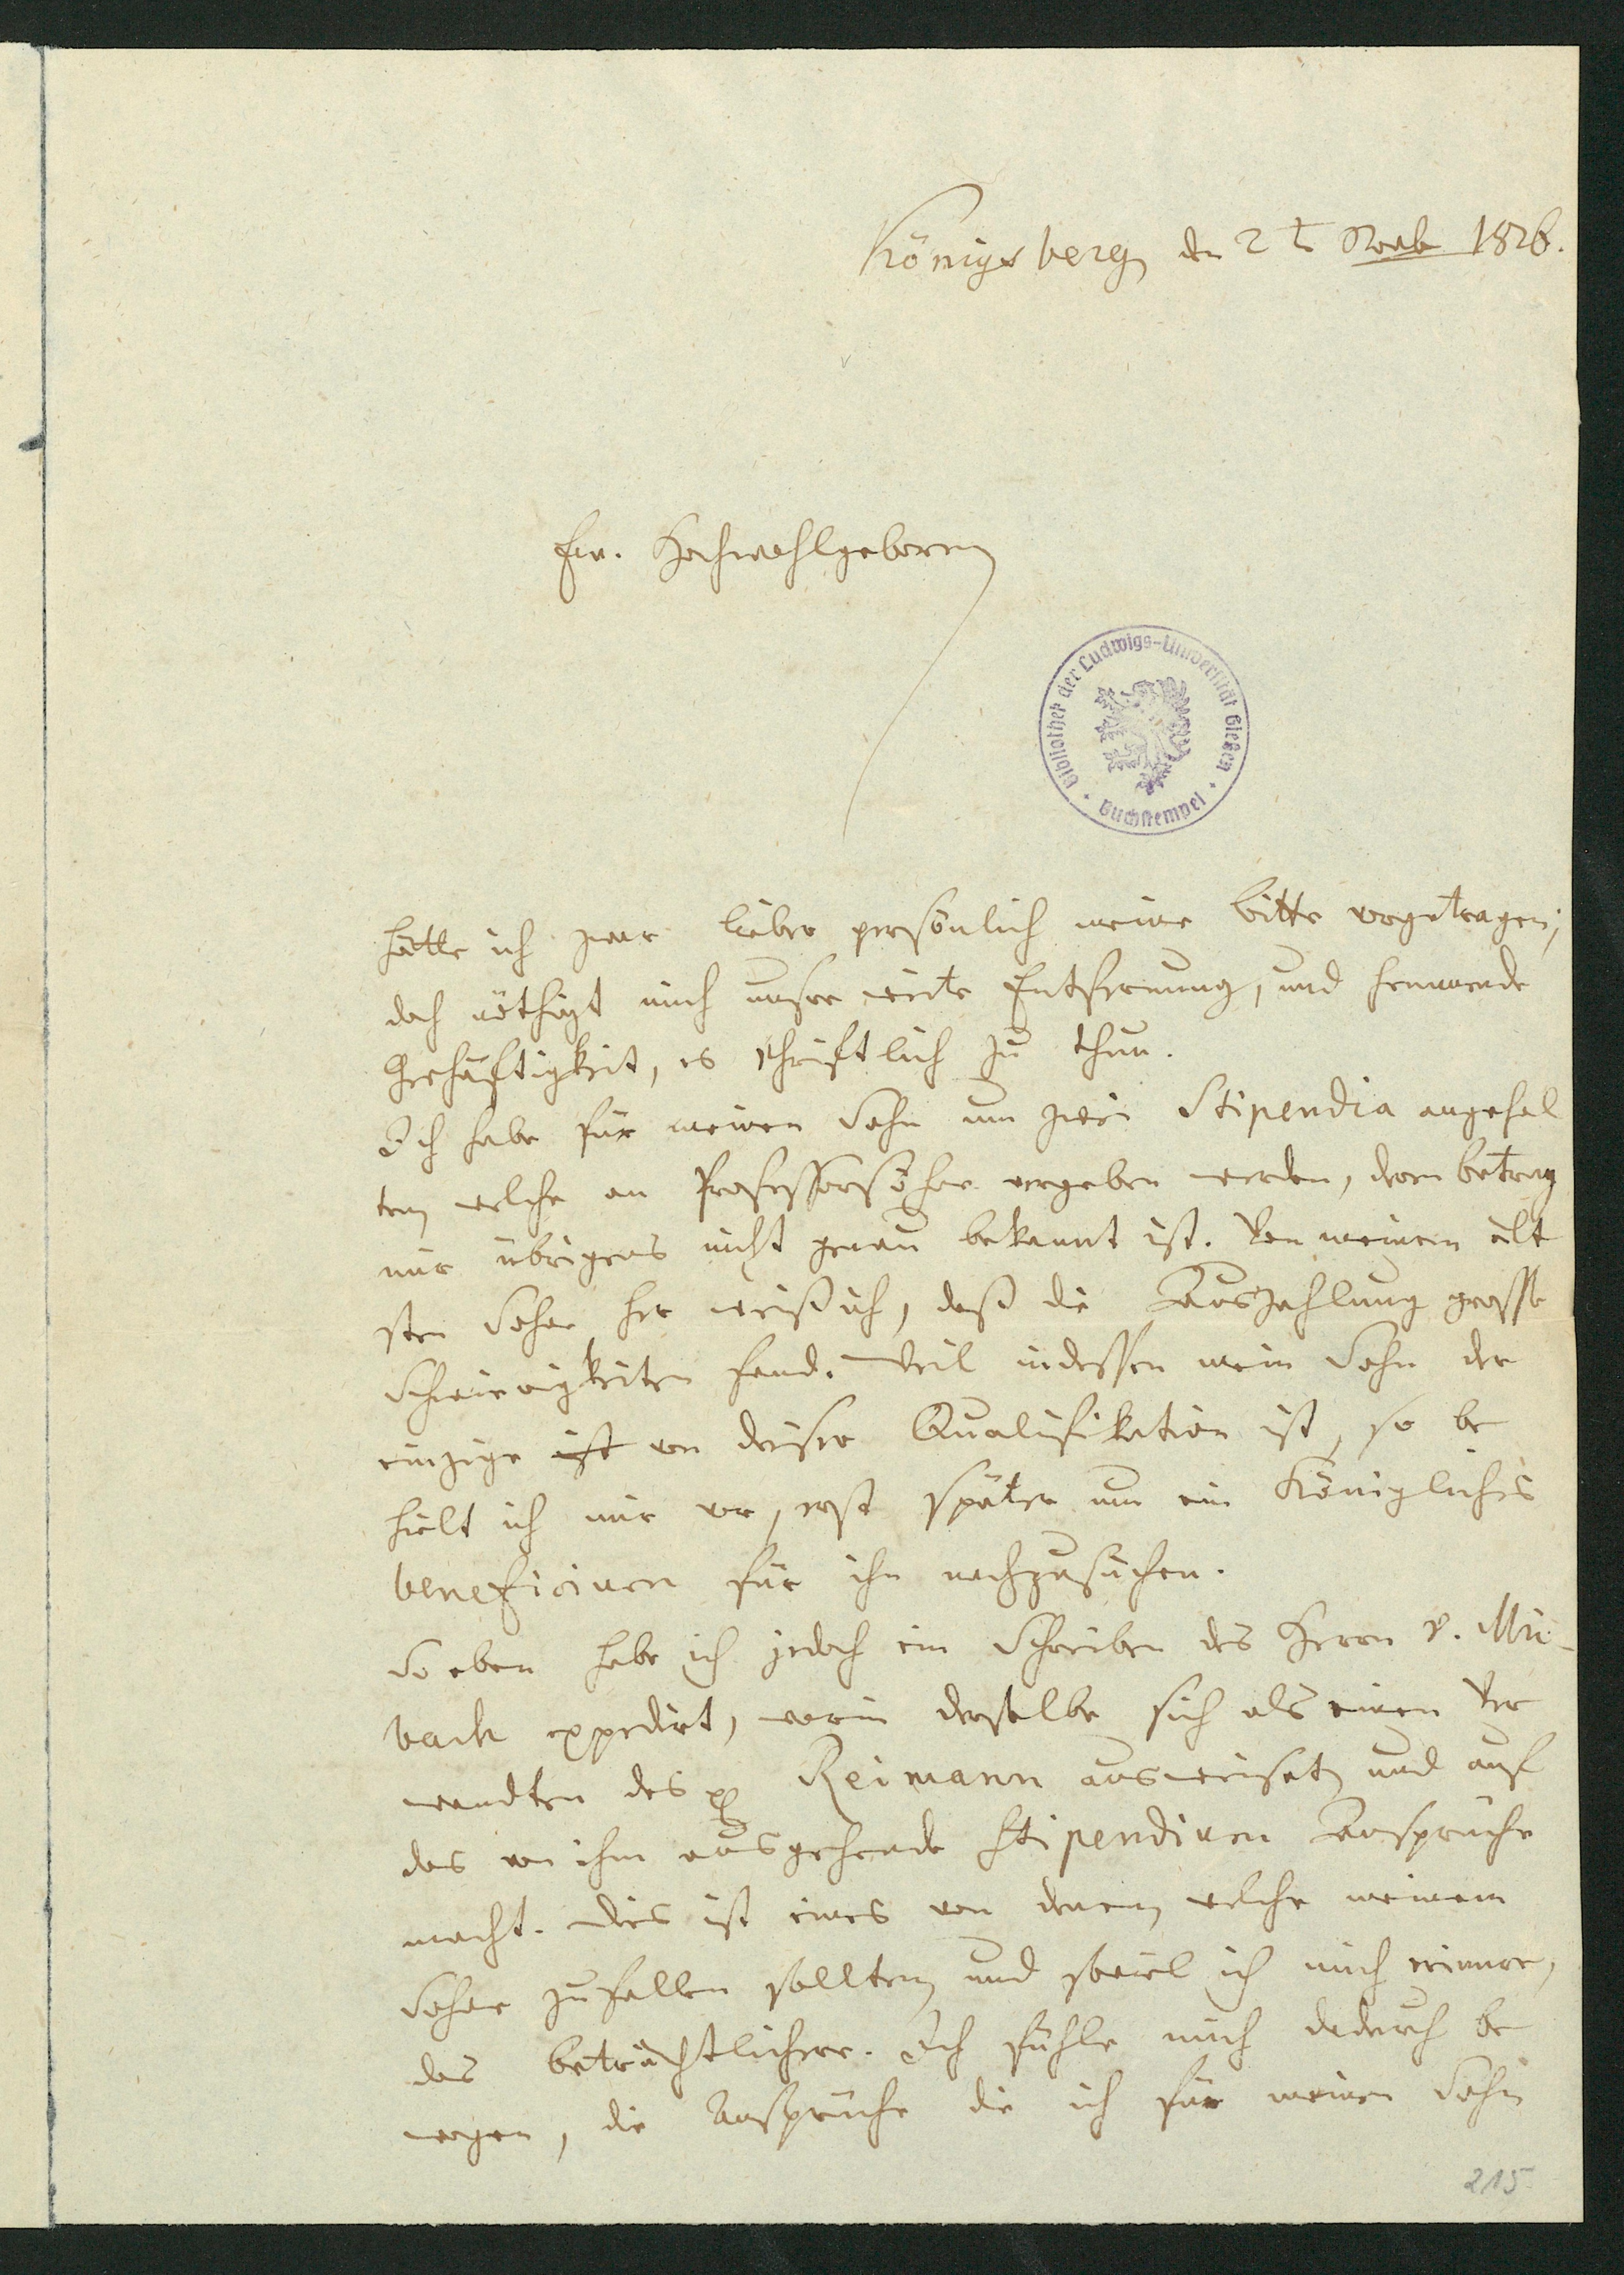 Königsberg den 2t Novb 1826.
Ew. Hochwohlgeboren
Bibliothek der Ludwigs-Universität Gießen
Buchstempel
hätte ich zwar lieber persönlich meine bitte vorgetragen;
doch nöthigt mich unsere weite Entfernung, und
Geschäftigkeit, es schriftlich zu thun.
Ich habe für meinen Sohn um zwei Stipendia angehal
ten welche an Professorsöhne vergeben werden, deren betrag
mir übrigens nicht genau bekannt ist. Von meinem ält
sten Sohne her weiß ich, daß die Auszahlung grosse
Schwierigkeiten fand. Weil indessen mein Sohn der
einzige ist von dieser Qualifikation ist, so be
hielt ich mir vor, erst später um ein Königliches
beneficium für ihn nachzusuchen.
So eben habe ich jedoch ein Schreiben des Herrn v. Mü-
back expedirt, worin derselbe sich als einen Ver
wandten des pp Reimann ausweiset und auf
das von ihm ausgehende Stipendium Ansprüche
macht. Dies ist eines von denen welche meinem
Sohne zufallen sollten und soviel ich mich erinnre,
das beträchtlichere. Ich fühle mich dadurch be
wogen, die Ansprüche die ich für meinen Sohn
215